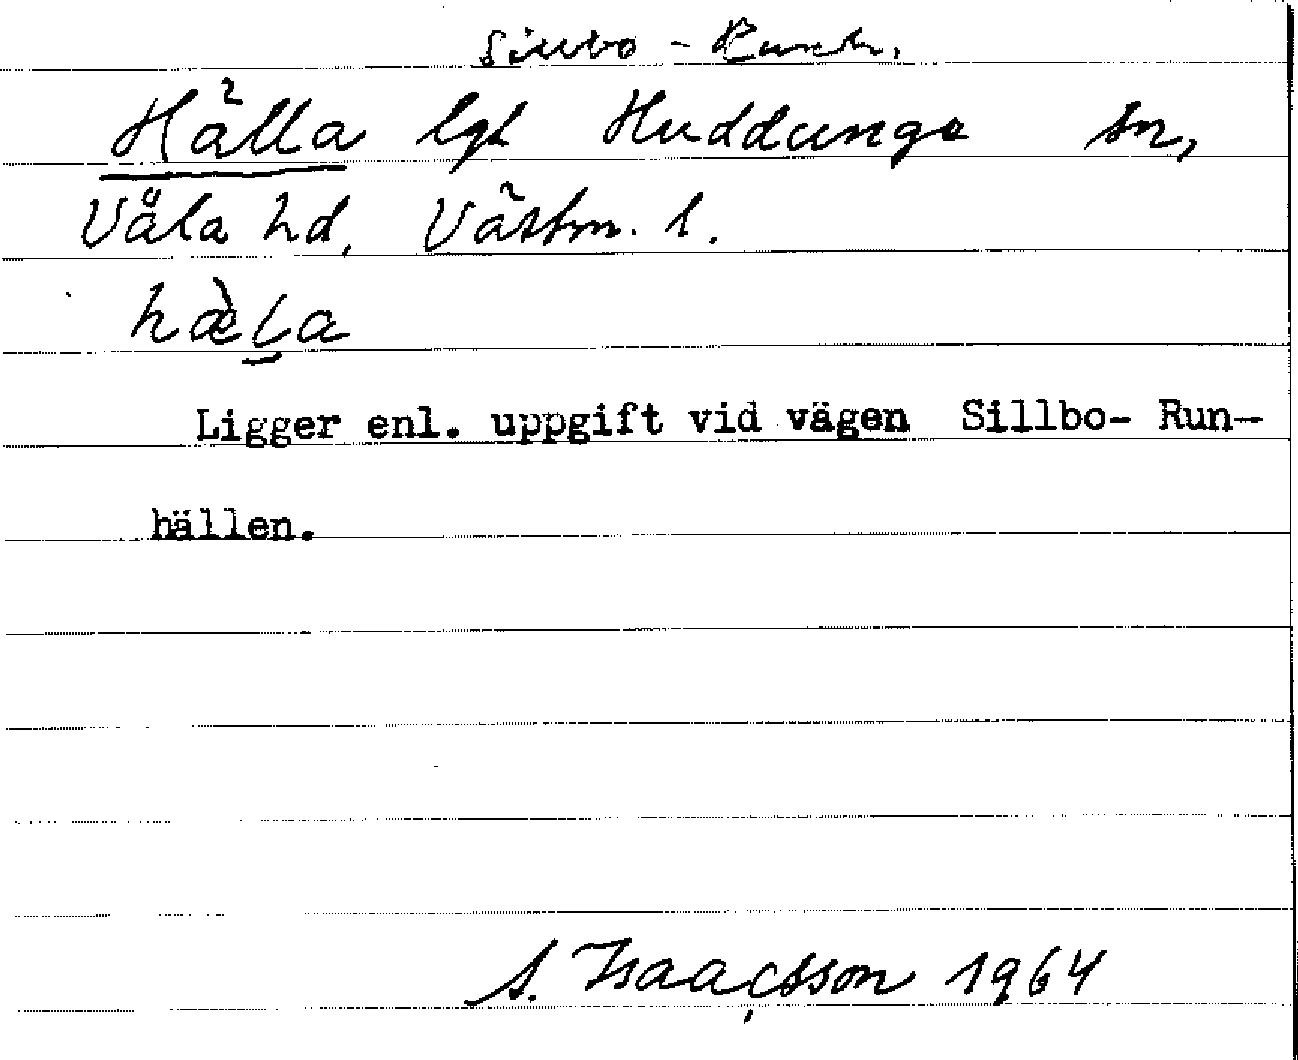 Sillbo - Runh.
Hälla lgh Huddunge sn,
Våla hd, Västm. l.
hæ̀l̠a
Ligger enl. uppgift vid vägen Sillbo- Run-
hällen.
S. Isaacsson 1964